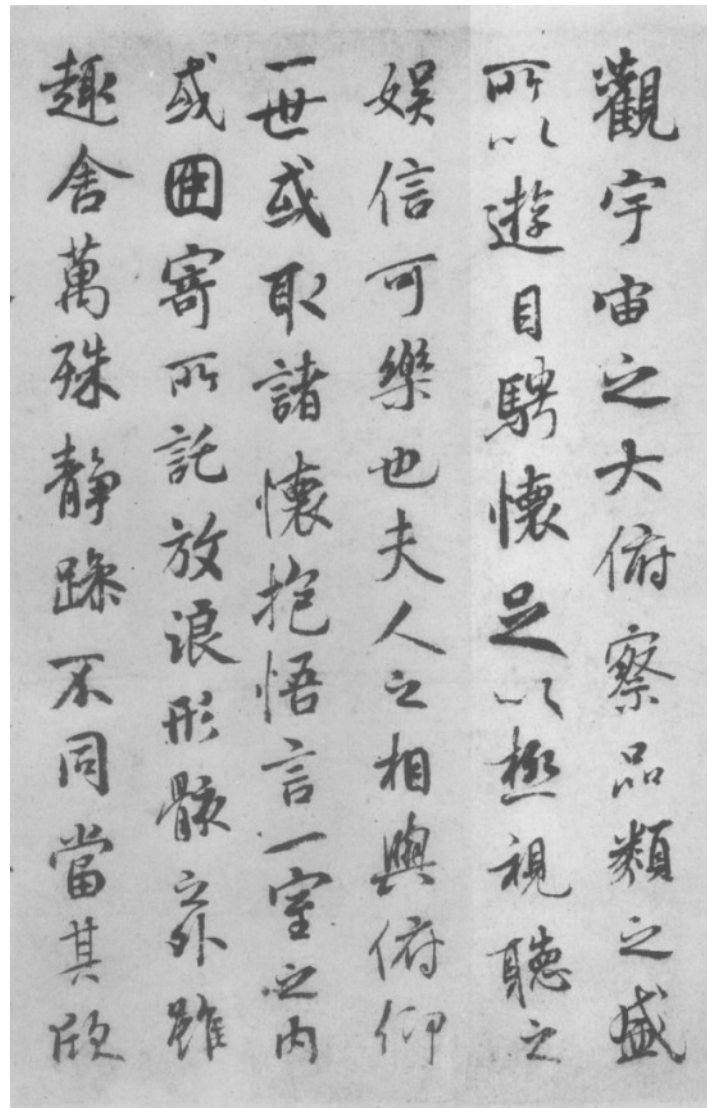 觀宇宙之大俯察品類之盛
所以遊目騁懷足以極視聽之
娛信可樂也夫人之相與俯仰
一世或取諸懷抱悟言一室之內
或因寄所託放浪形骸之外雖
趣舍萬殊靜躁不同當其欣